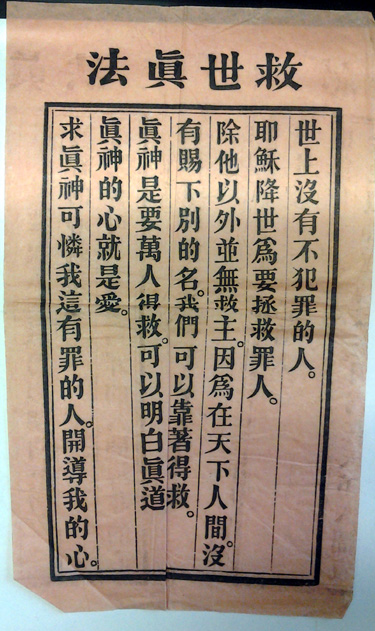 救世眞法
世上沒有不犯罪的人。
耶穌降世爲要拯救罪人。
除他以外並無救主。因爲在天下人間。沒
有賜下別的名。我們可以靠著得救。
眞神是要萬人得救。可以明白眞道
眞神的心就是愛。
求眞神可憐我這有罪的人。開導我的心。